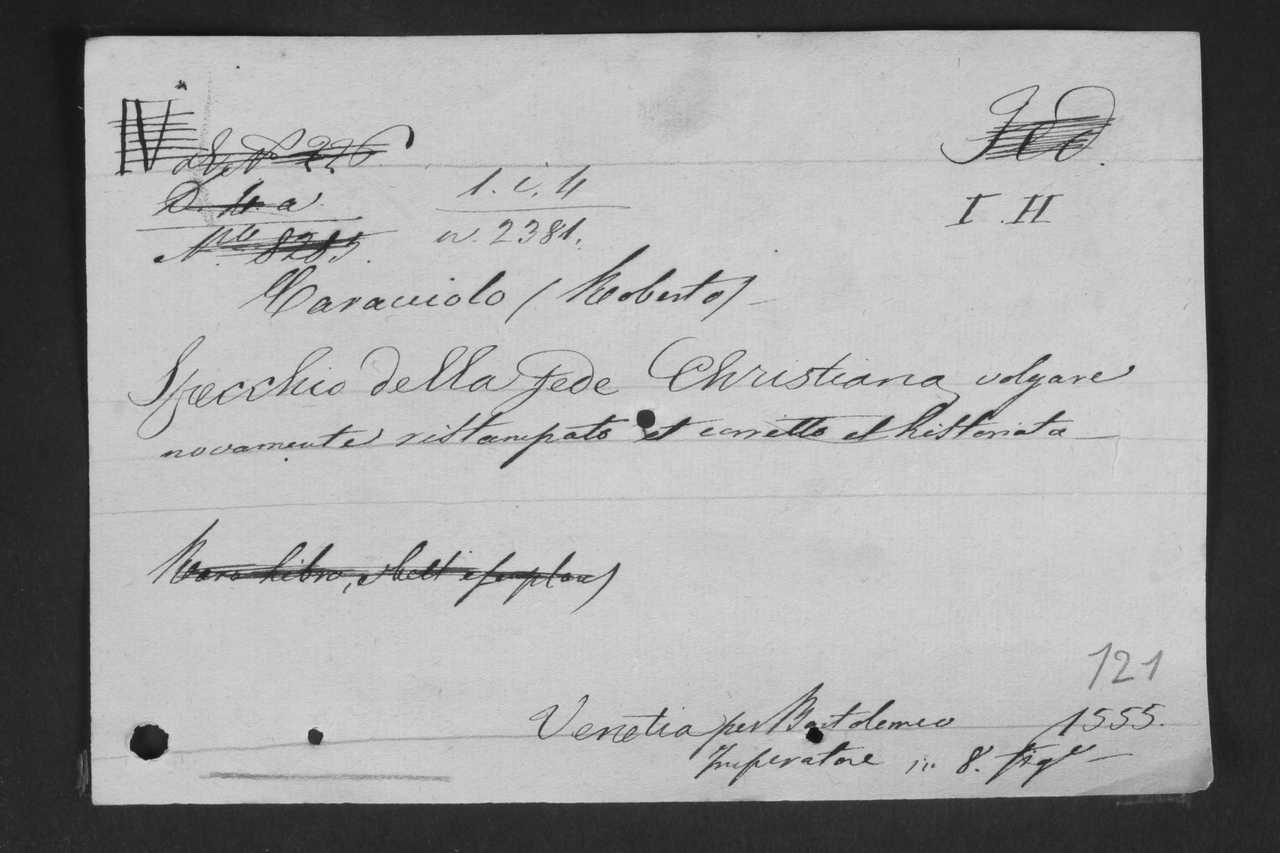 IV
D. 4. a
1. c. 4
I. II
n. 2381.
8285.
Caracciolo (Roberto)
Specchio della Fede Christiana volgare
novamente ristampato et corretto et historiato
Raro libro,
121
Venetia per Bartolomeo 1555.
Imperatore in 8. fig